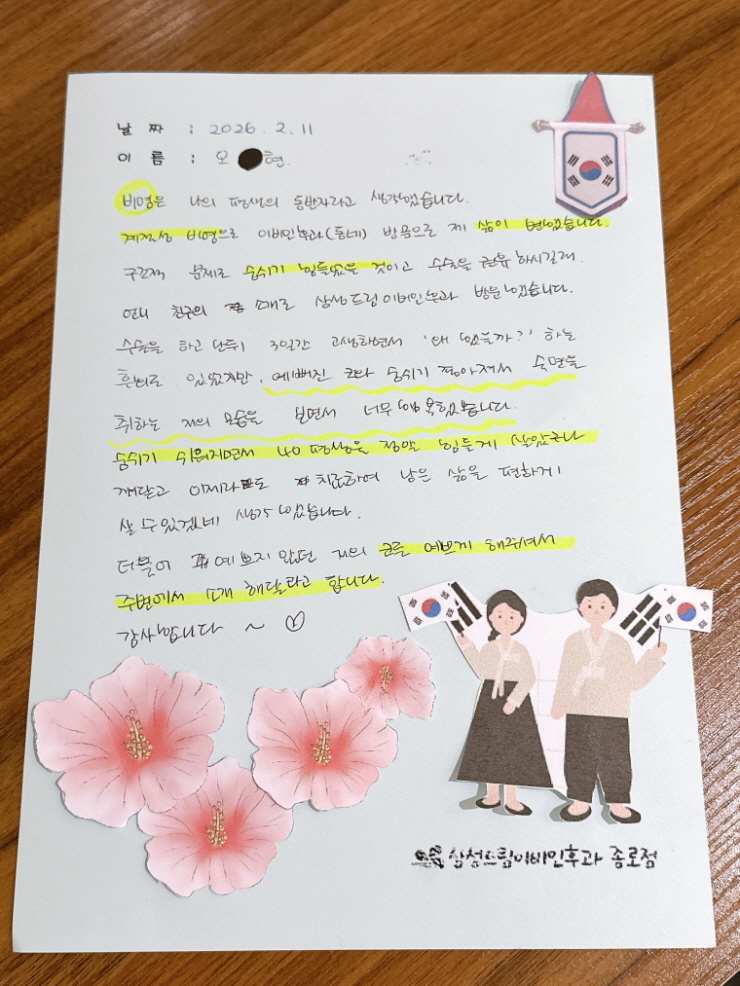 날 짜 : 2026. 2. 11
이 름 : 오 현.
비염은 나의 평생의 동반자라고 생각했습니다.
계절성 비염으로 이비인후과(동네) 방문으로 제 삶이 변했습니다.
구조적 문제로 숨쉬기 힘들었을 것이고 수술을 권유 하시길래.
언니 친구의 소개로 삼성드림이비인후과 방문했습니다.
수술을 하고 난뒤 3일간 고생하면서 '왜 했을까?' 하는
후회로 있었지만, 예뻐진 코와 숨쉬기 편아저서 숙면을
취하는 저의 모습을 보면서 너무 행복했습니다.
숨쉬기 쉬워지면서 40평생을 정말 힘들게 살았구나
깨닫고 이제라도 치료하여 남은 삶을 편하게
살 수 있겠네 생각했습니다.
더불어 예쁘지 않던 저의 코를 예쁘게 해주셔서
주변에서 소개 해달라고 합니다.
감사합니다 ~ ♡
삼성드림이비인후과 종로점